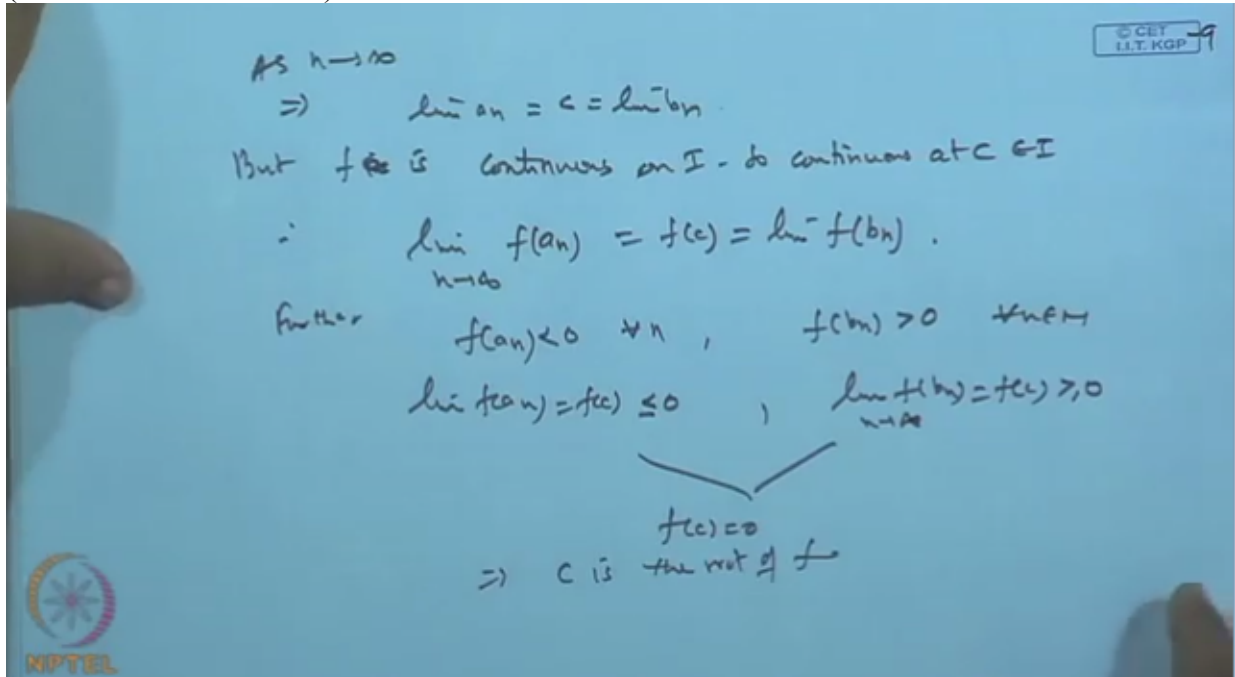 © CET
I.I.T. KGP
-9
As n→∞
⇒ lim an = c = lim bn.
But f is continuous on I - so continuous at c ∈ I
∴ lim f(an) = f(c) = lim f(bn).
n→∞
Further f(an)<0 ∀ n, f(bn) >0 ∀ n∈N
lim f(an) = f(c) ≤ 0 , lim f(bn) = f(c) ≥ 0
n→∞
f(c) = 0
⇒ c is the root of f
NPTEL